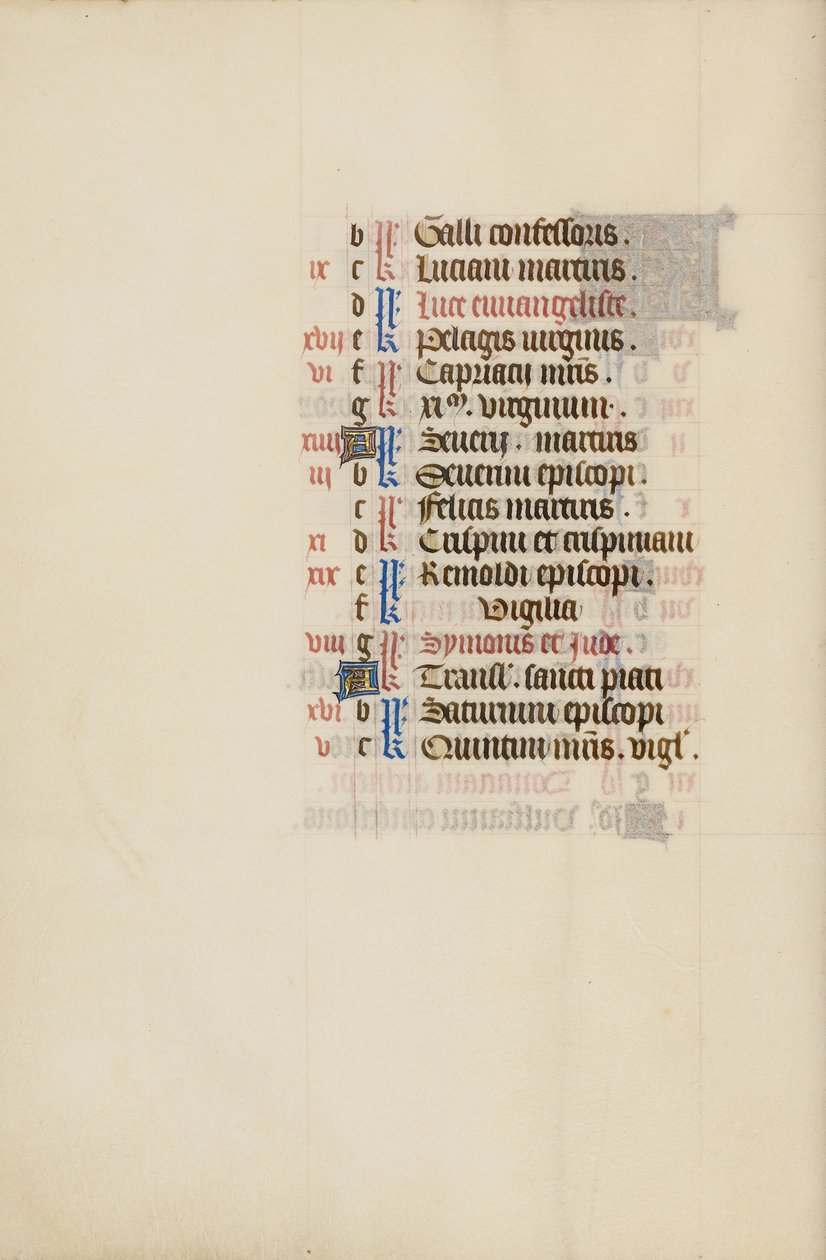 b kl Galli confessoris.
ix c kl Luciani martiris.
d kl Luce euuangeliste.
xvij e kl Pelagis uirginis.
vi f kl Capriacij mr̄is.
g kl xi.ᵐ virginum.
xiiij A kl Seuerij. martiris
iij b kl Seuerini episcopi.
c kl Felicis martiris.
xi d kl Crispini et crispiniani
xix e kl Remoldi episcopi.
f kl Vigilia
viij g kl Symonis et Jude.
A kl Transl'. sancti piati
xvi b kl Saturnini episcopi
v c kl Quintini mr̄is. vigl'.